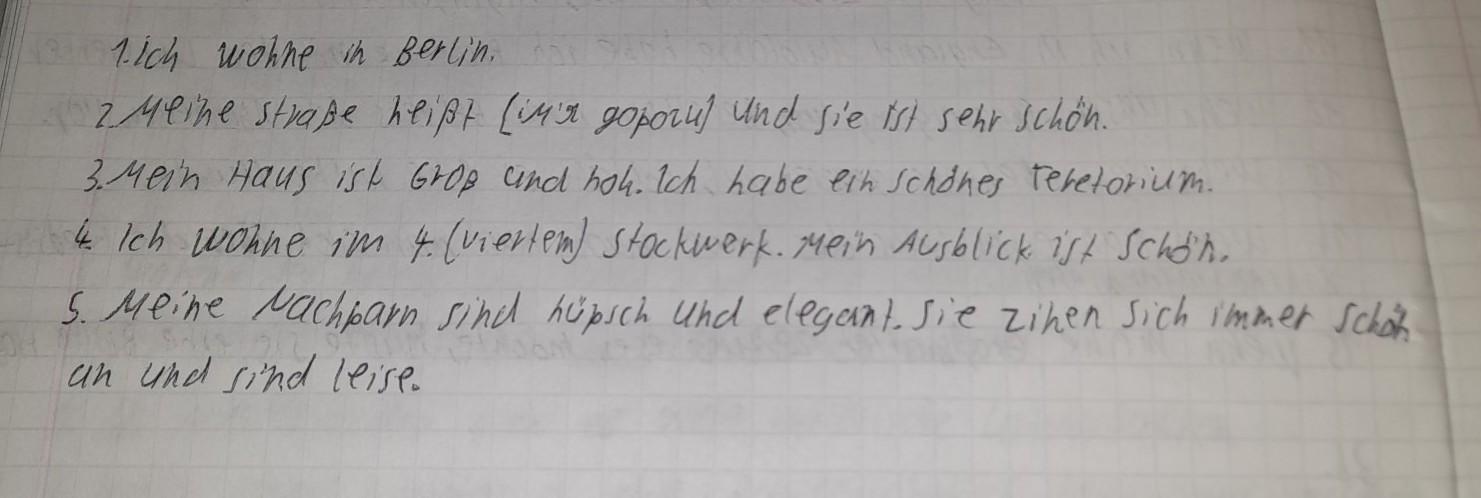 1. Ich wohne in Berlin.
2. Meine Straße heißt [им'я дороги] und sie ist sehr schön.
3. Mein Haus ist Groß und hoh. Ich habe ein schönes Teretorium.
4. Ich wohne im 4. (viertem) Stockwerk. Mein Ausblick ist schön.
5. Meine Nachparn sind hüpsch und elegant. Sie zihen sich immer schön
an und sind leise.